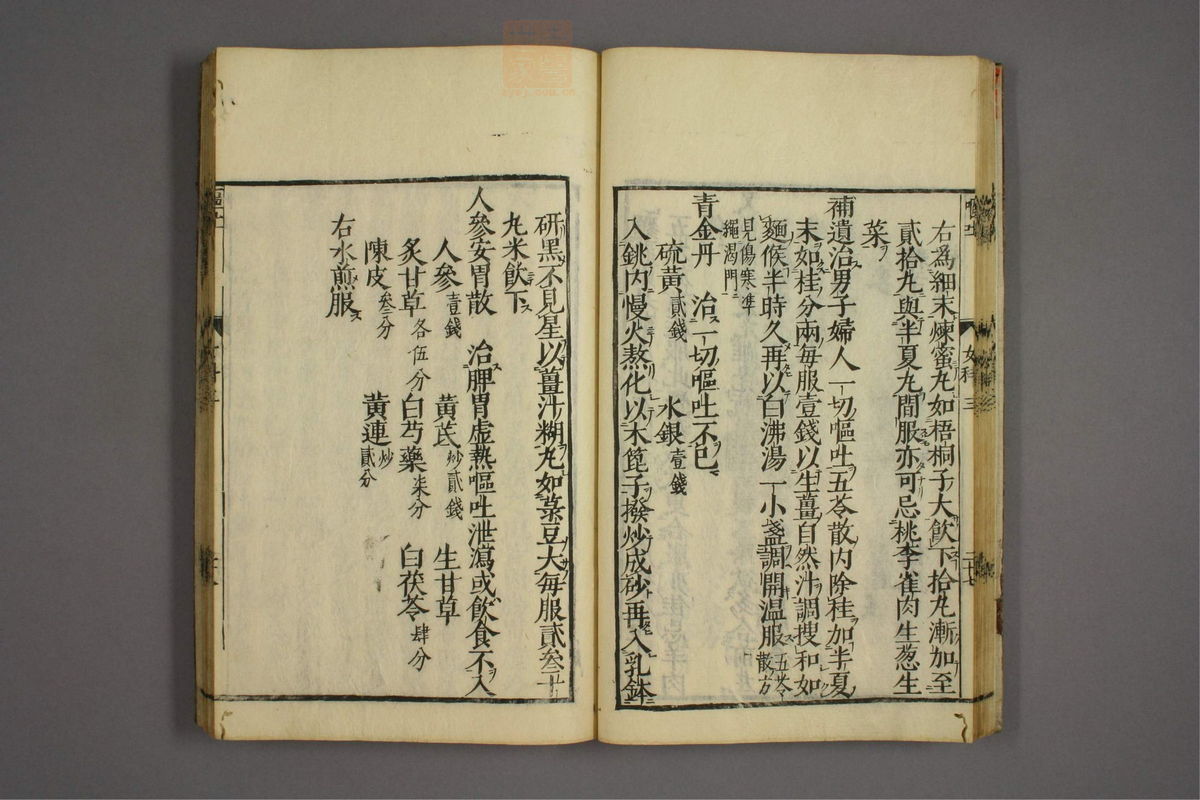 右為細末煉蜜丸如梧桐子大飲下拾丸漸加至
貳拾丸與半夏丸間服亦可忌桃李雀肉生葱生
菜
補遺治男子婦人一切嘔吐五苓散內除桂加半夏
末如桂分兩每服壹錢以生薑自然汁調搜和如
麵候半時久再以白沸湯一小盞調開温服五苓散方
見傷寒準
繩渴門
青金丹　治一切嘔吐不已
硫黃貳錢　水銀壹錢
入銚內慢火熬化以木篦子撥炒成砂再入乳鉢
女科三
二十七
研黑不見星以薑汁糊丸如菉豆大每服貳叁十
丸米飲下
人參安胃散　治脾胃虛熱嘔吐泄瀉或飲食不入
人參壹錢　黃芪炒貳錢　生甘草
炙甘草各伍分　白芍藥柒分　白茯苓肆分
陳皮叁分　黃連炒貳分
右水煎服